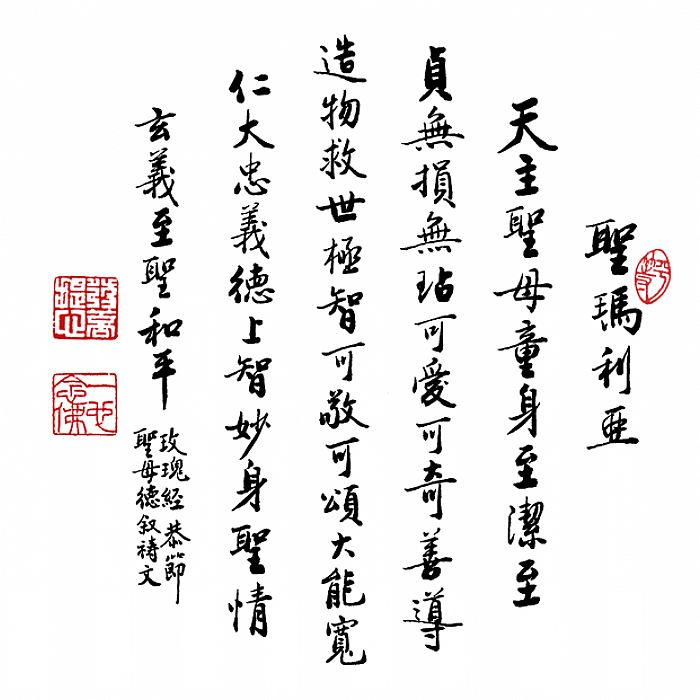 聖瑪利亜
天主聖母童身至潔至
貞無損無玷可愛可奇善導
造物救世極智可敬可頌大能寬
仁大忠義德上智妙身聖情
玄義至聖和平
玫瑰経恭節
聖母德叙祷文
一心念佛